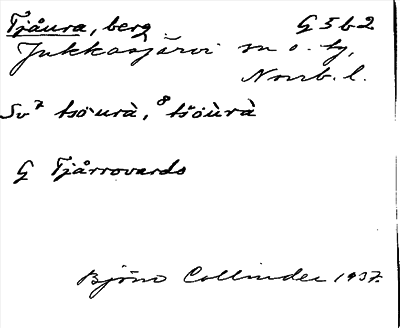 Tjåura, berg G 5 b 2
Jukkasjärvi sn o. tg,
Norrb. l.
Sv⁷ tsöurà, ⁸ tšöùrà
G Tjårrovards
Björn Collinder 1937.